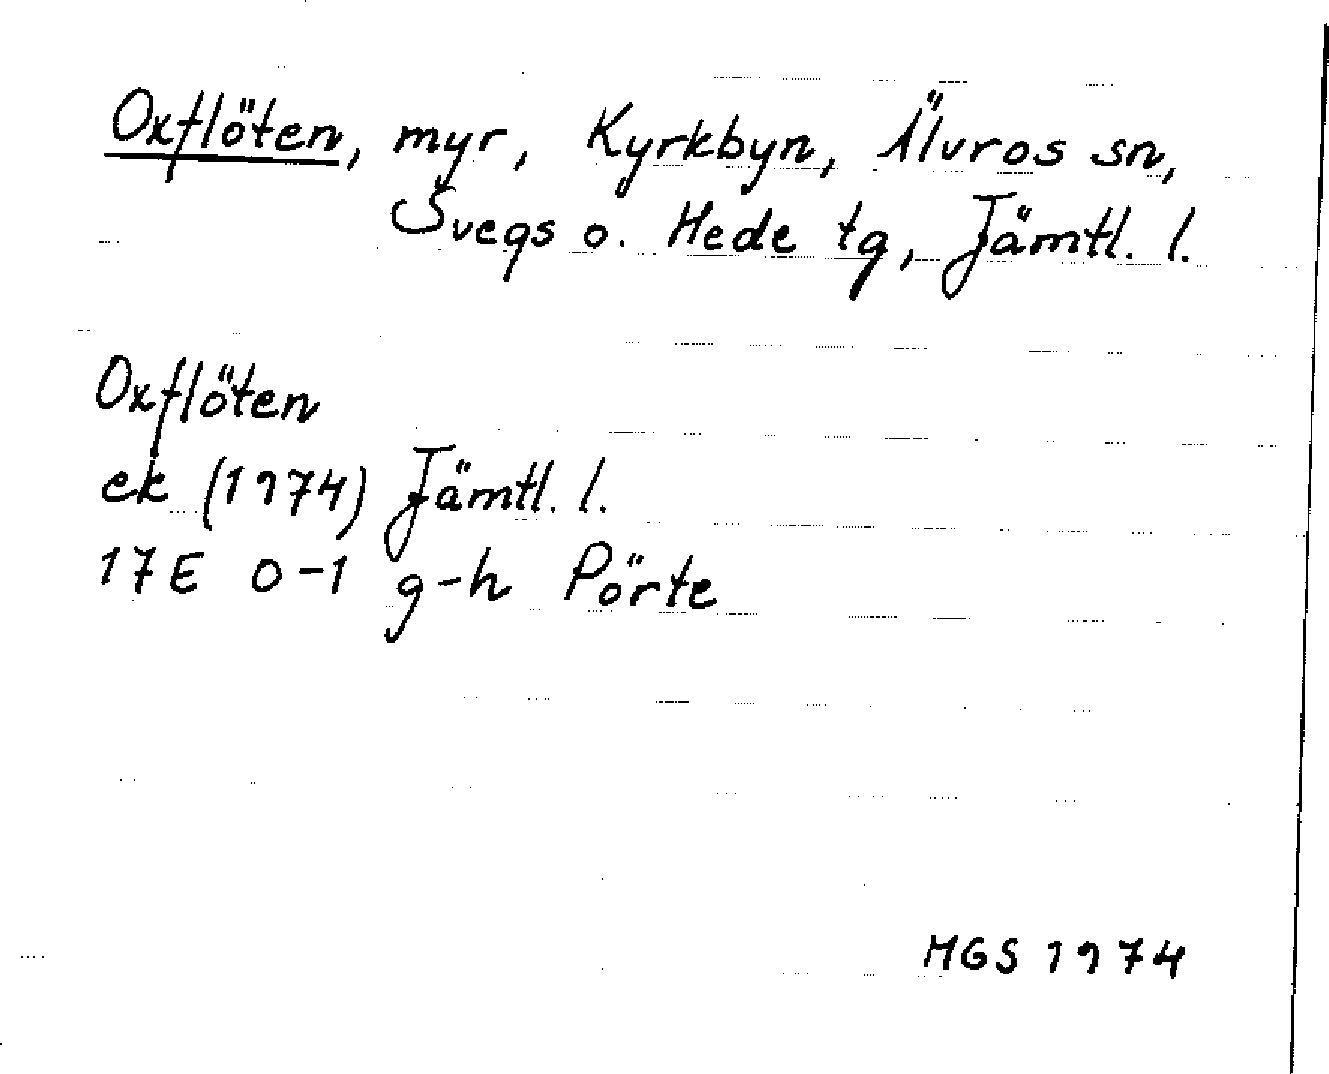 Oxflöten, myr, Kyrkbyn, Älvros sn,
Svegs o. Hede tg, Jämtl. l.
Oxflöten
ek (1974) Jämtl. l.
17E 0-1 g-h Pörte
MGS 1974